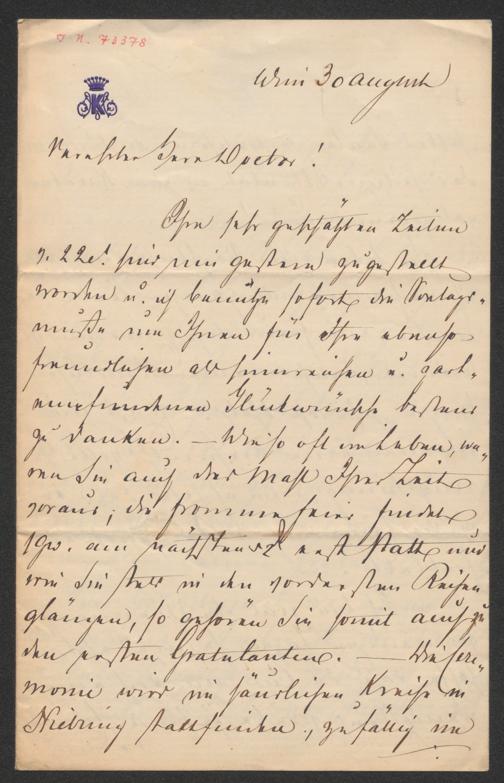 I. N. 73378
K
Wien 30 August
Verehrter Herr Doctor!
Ihre sehr geschätzten Zeilen
v. 22et. sind mir gestern zugestellt
worden u. ich benütze sofort die Sontags-
muße um Ihnen für Ihre ebenso
freundlichen als sinnreichen u. zart-
empfundenen Glückwünsche bestens
zu danken. — Wie so oft im Leben, wa-
ren Sie auch dies Mahl Ihrer Zeit
voraus; die fromme Feier findet
am nächsten erst statt und
wie Sie stets in den vordersten Reihen
glänzen, so gehören Sie somit auch zu
den ersten Gratulanten. — Die Cere-
monie wird im häuslichen Kreise in
stattfinden, zufällig im